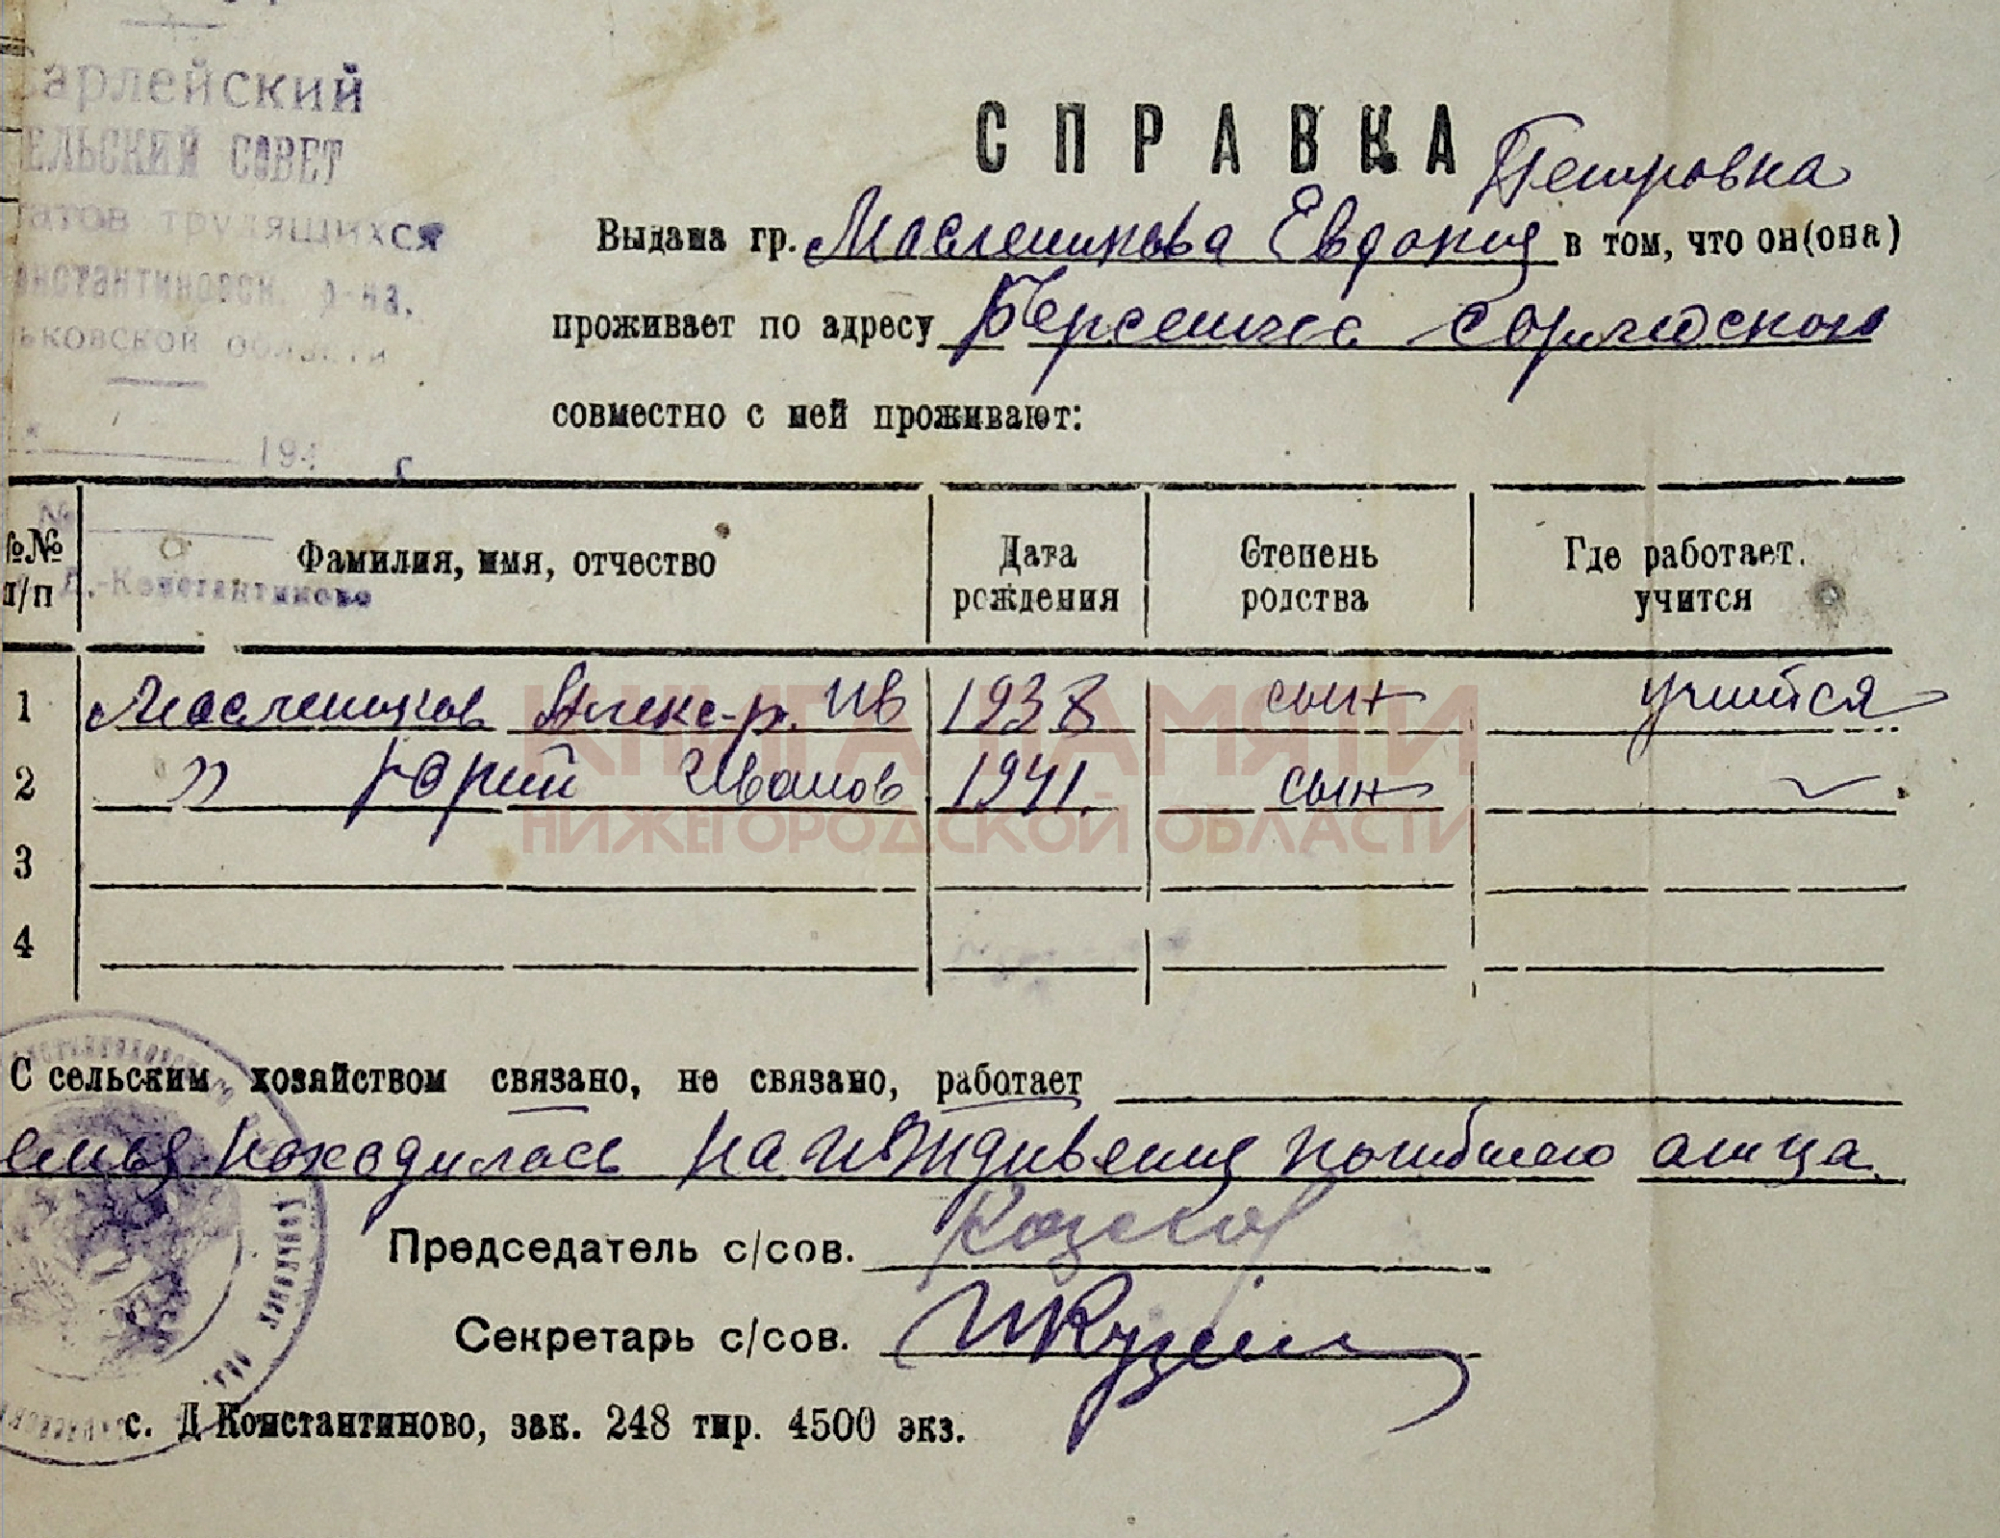 арлейский
ЕЛЬСКИЙ СОВЕТ
татов трудящихся
онстантиновск. р-на,
ьковской области
194 г
№
Д.-Константиново
СПРАВКА
Петровна
Выдана гр. Масленикова Евдокия в том, что он(она)
проживает по адресу
совместно с ней проживают:
№№ п/п Фамилия, имя, отчество Дата рождения Степень родства Где работает. учится
1 Маслеников Алекс-р. Ив 1938 сын учится
2 " Юрий Иванов 1941. сын
3
4
КНИГА ПАМЯТИ
НИЖЕГОРОДСКОЙ ОБЛАСТИ
С сельским хозяйством связано, не связано, работает
емья находилась на иждивении погибшего отца.
Председатель с/сов. Козлов
Секретарь с/сов.
с. Д Константиново, зак. 248 тир. 4500 экз.